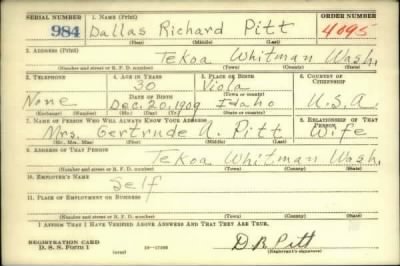 SERIAL NUMBER
1. NAME (Print)
ORDER NUMBER
984
Dallas Richard Pitt
4095
(First) (Middle) (Last)
2. ADDRESS (Print)
Tekoa Whitman Wash.
(Number and street or R. F. D. number) (Town) (County) (State)
3. TELEPHONE
4. AGE IN YEARS
5. PLACE OF BIRTH
6. COUNTRY OF CITIZENSHIP
30
Viola
DATE OF BIRTH
(Town or county)
None
Dec. 20, 1909
Idaho
U.S.A.
(Exchange) (Number) (Mo.) (Day) (Yr.) (State or country)
7. NAME OF PERSON WHO WILL ALWAYS KNOW YOUR ADDRESS
8. RELATIONSHIP OF THAT PERSON
Mrs. Gertrude A. Pitt
Wife
(Mr., Mrs., Miss) (First) (Middle) (Last)
9. ADDRESS OF THAT PERSON
Tekoa Whitman Wash.
(Number and street or R. F. D. number) (Town) (County) (State)
10. EMPLOYER'S NAME
Self
11. PLACE OF EMPLOYMENT OR BUSINESS
(Number and street or R. F. D. number) (Town) (County) (State)
I AFFIRM THAT I HAVE VERIFIED ABOVE ANSWERS AND THAT THEY ARE TRUE.
REGISTRATION CARD
D. S. S. Form 1
(over)
D R Pitt
(Registrant's signature)